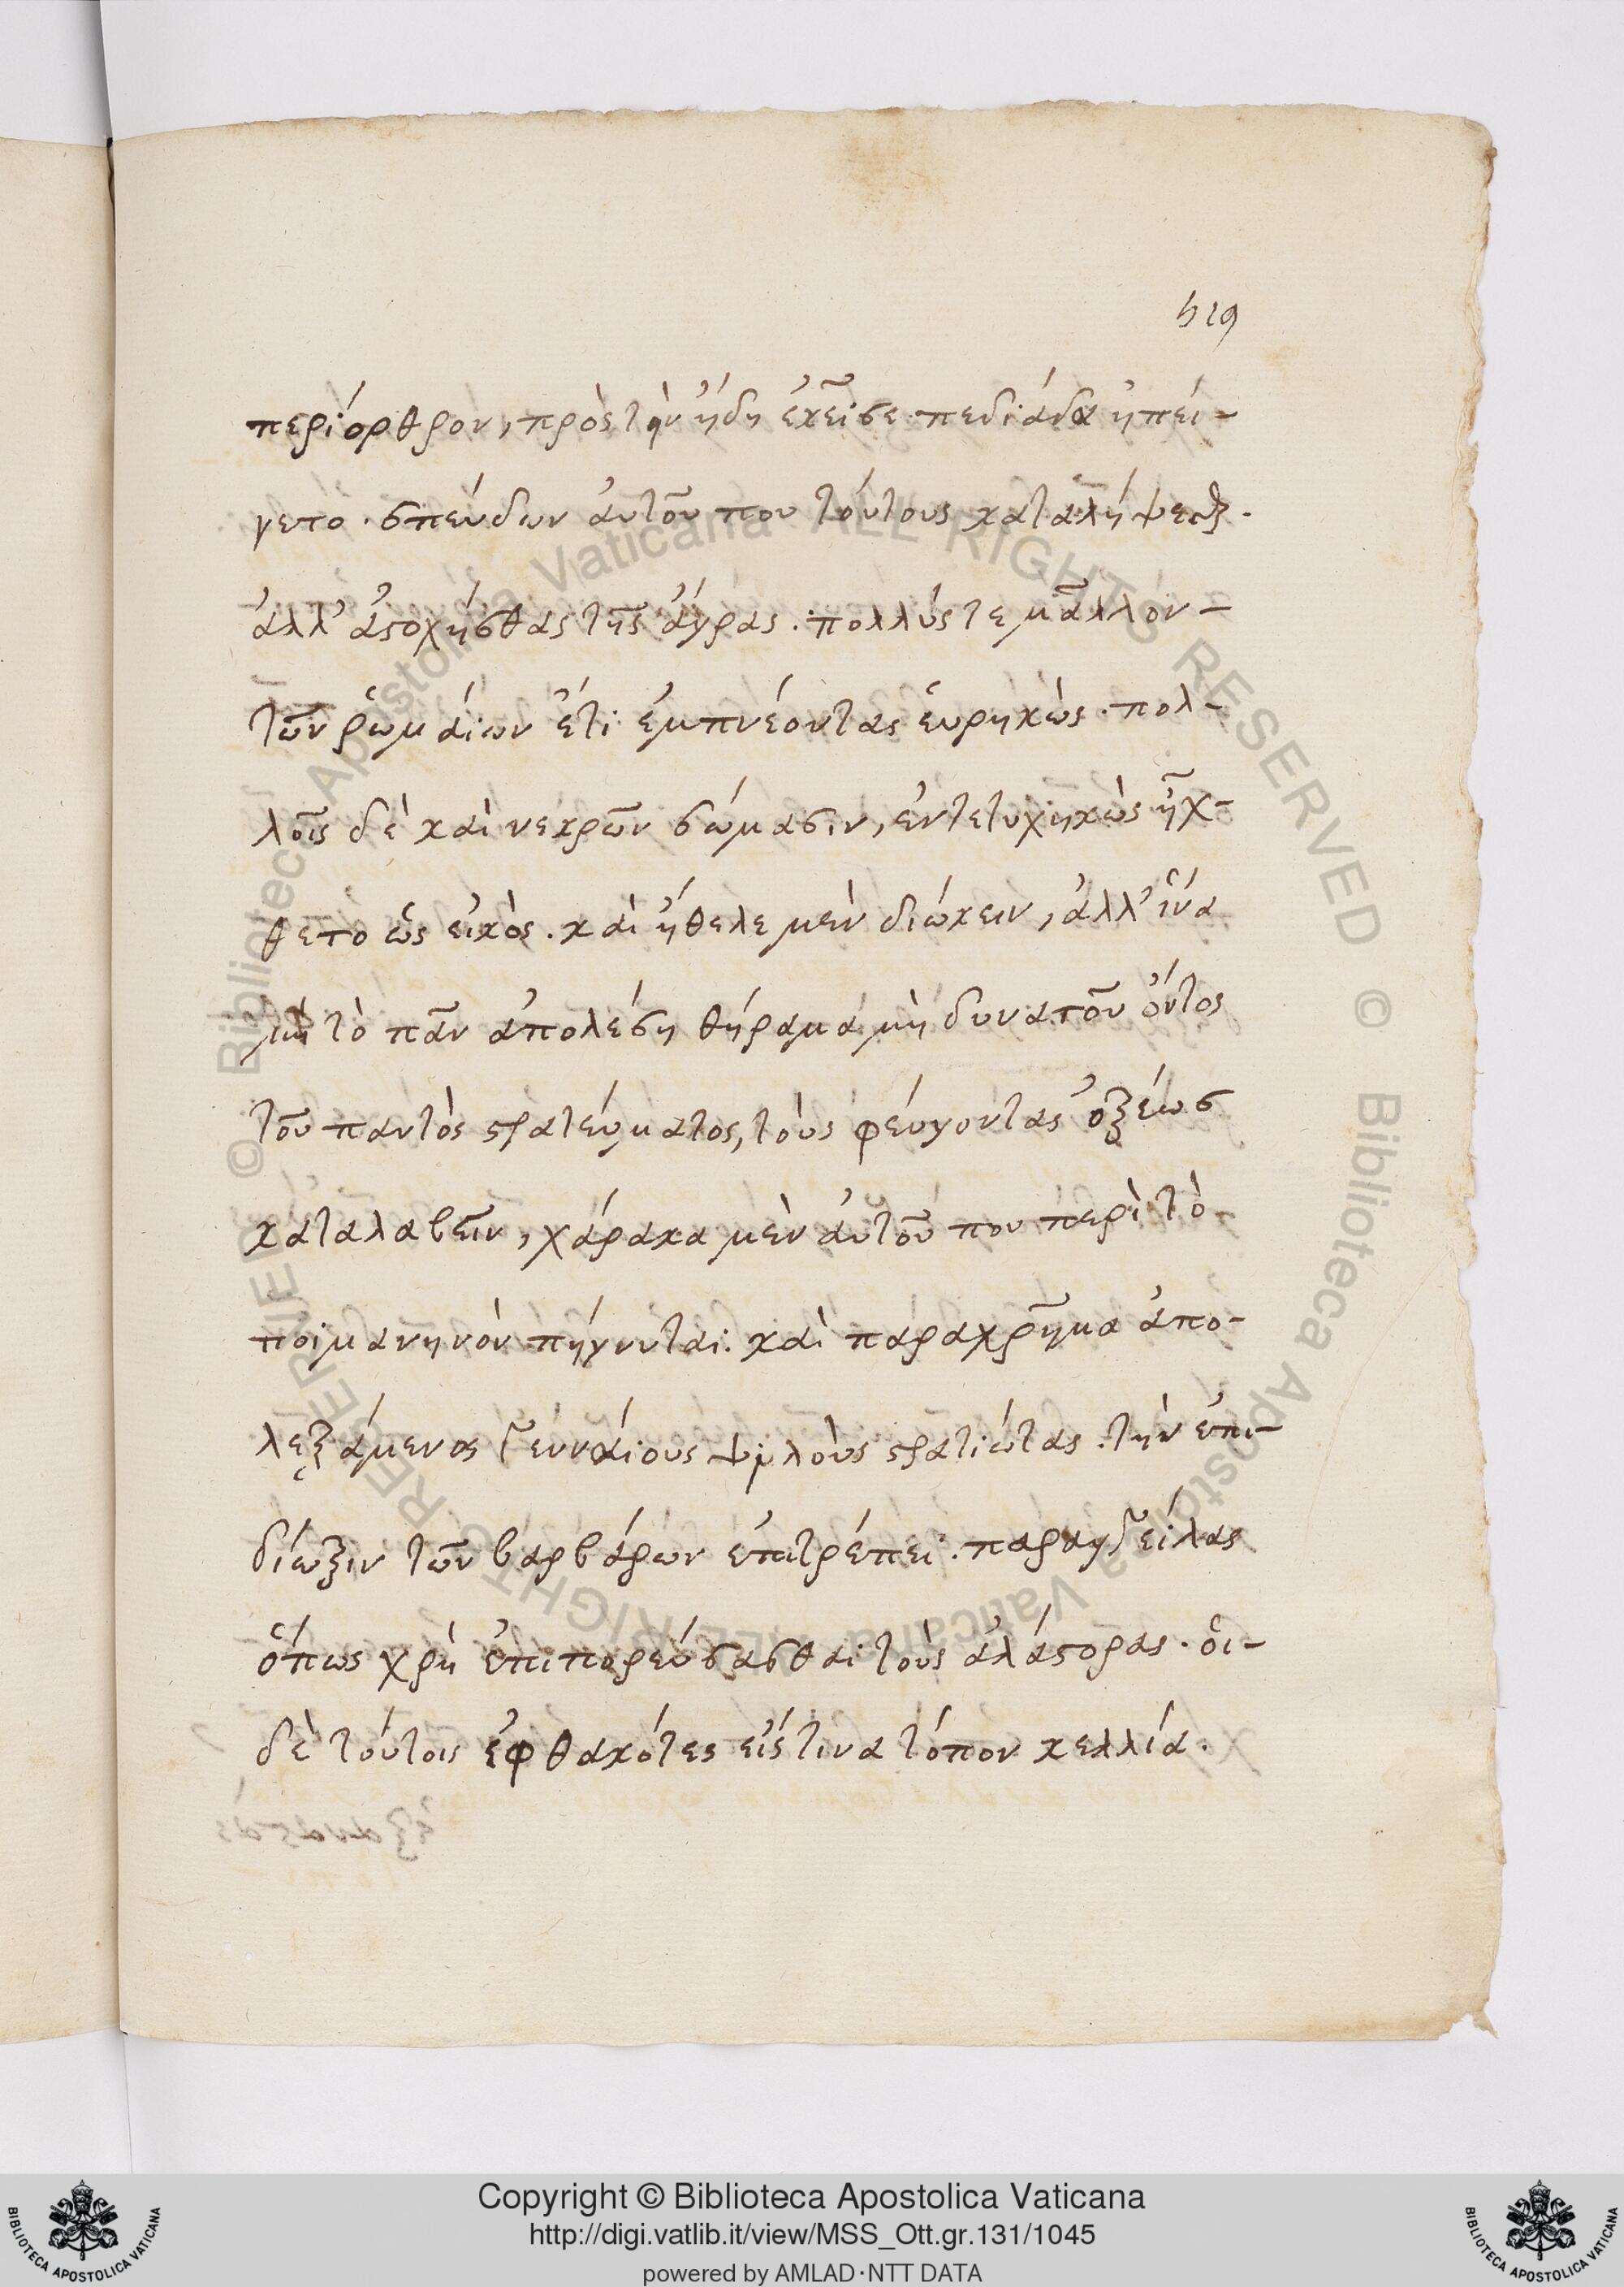 519
περίορθρον, πρὸς τὴν ἤδη ἐκεῖσε πεδιάδα ἠπεί-
γετο. σπεύδων αὐτοῦ που τούτους καταλήψεσθαι.
ἀλλ' ἀστοχήσας τῆς ἄγρας. πολλούς τε μᾶλλον-
τῶν ῥωμαίων ἔτι ἐμπνέοντας εὑρηκὼς. πολ-
λοῖς δὲ καὶ νεκρῶν σώμασιν, ἐντετυχηκὼς ἤχ-
θετο ὡς εἰκὸς. καὶ ἤθελε μὲν διώκειν, ἀλλ' ἵνα
μὴ τὸ πᾶν ἀπολέση θήραμα μὴ δυνατοῦ ὄντος
τοῦ παντὸς στρατεύματος, τοὺς φεύγοντας ὀξέως
καταλαβεῖν, χάρακα μὲν αὐτοῦ που περὶ τὸ
ποιμανηνὸν πήγνυται. καὶ παραχρῆμα ἀπο-
λεξάμενος γενναίους ψιλοὺς στρατιώτας. τὴν ἐπι-
δίωξιν τῶν βαρβάρων ἐπιτρέπει. παραγγείλας
ὅπως χρὴ ἐπιπορεύσασθαι τοὺς ἀλάστορας. οἱ-
δὲ τούτοις ἐφθακότες εἴς τινα τόπον κελλία.
Copyright © Biblioteca Apostolica Vaticana
http://digi.vatlib.it/view/MSS_Ott.gr.131/1045
powered by AMLAD·NTT DATA